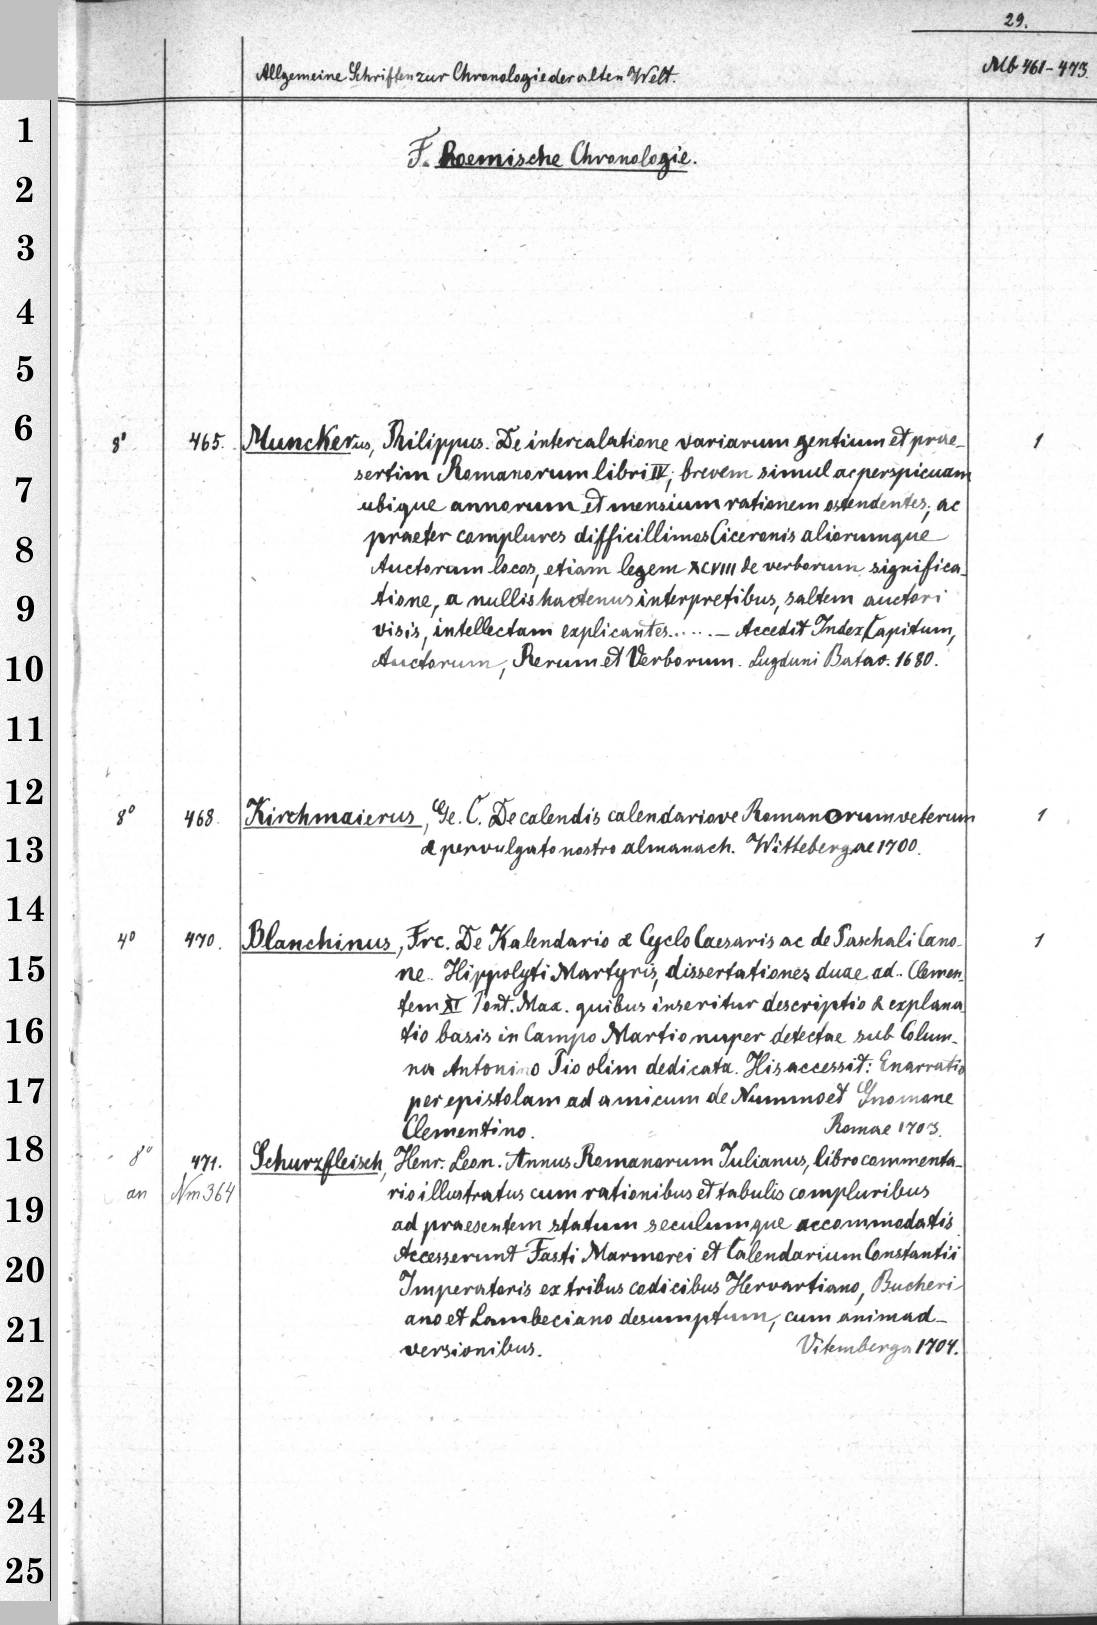 29.
Allgemeine Schriften zur Chronologie der alten Welt.
Mb 461-473.
F. Roemische Chronologie.
1
2
3
4
5
6
7
8
9
10
11
12
13
14
15
16
17
18
19
20
21
22
23
24
25
8° 465. Munckerus, Philippus. De intercalatione variarum gentium et prae- 1
sertim Romanorum libri IV; brevem simul ac perspicuam
ubique annorum et mensium rationem ostendentes; ac
praeter complures difficillimos Ciceronis aliorumque
Auctorum locos, etiam legem XCVIII de verborum significa-
tione, a nullis hactenus interpretibus, saltem auctori
visis, intellectam explicantes...... - Accedit Index Capitum,
Auctorum, Rerum et Verborum. Lugduni Batav. 1680.
8° 468. Kirchmaierus, Ge. C. De calendis calendariove Romanorum veterum 1
& pervulgato nostro almanach. Wittebergae 1700.
4° 470. Blanchinus, Frc. De Kalendario & Cyclo Caesaris ac de Paschali Cano- 1
ne.. Hippolyti Martyris, dissertationes duae ad.. Clemen-
tem XI Pont. Max. quibus inseritur descriptio & explana
tio basis in Campo Martio nuper detectae sub Colum-
na Antonino Pio olim dedicata. His accessit: Enarratio
per epistolam ad amicum de Nummo et Gnomone
Clementino. Romae 1703.
8° 471. Schurzfleisch, Henr. Leon. Annus Romanorum Iulianus, libro commenta-
an Nm 364 rio illustratus cum rationibus et tabulis compluribus
ad praesentem statum seculumque accommodatis
Accesserunt Fasti Marmorei et Calendarium Constantii
Imperatoris ex tribus codicibus Hervartiano, Bucheri-
ano et Lambeciano desumptum, cum animad-
versionibus. Vitemberga 1704.